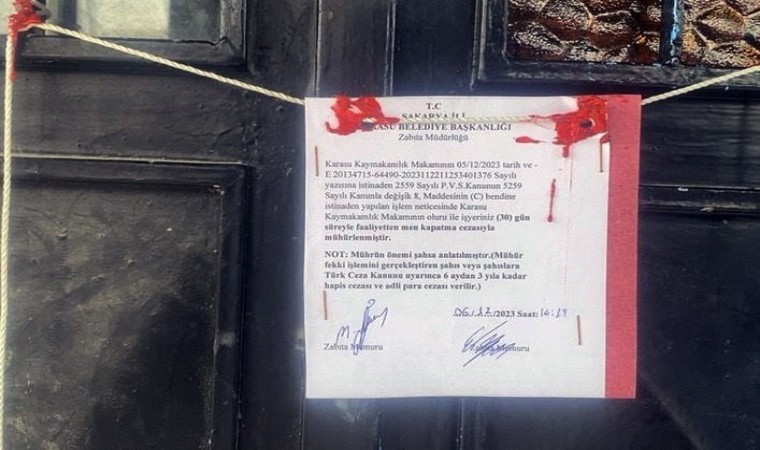 T.C
SAKARYA İLİ
KARASU BELEDİYE BAŞKANLIĞI
Zabıta Müdürlüğü
Karasu Kaymakamlık Makamının 05/12/2023 tarih ve -
E 20134715-64490-2023112211253401376 Sayılı
yazısına istinaden 2559 Sayılı P.V.S.Kanunun 5259
Sayılı Kanunla değişik 8, Maddesinin (C) bendine
istinaden yapılan işlem neticesinde Karasu
Kaymakamlık Makamının oluru ile işyeriniz (30) gün
süreyle faaliyetten men kapatma cezasıyla
mühürlenmiştir.
NOT: Mührün önemi şahsa anlatılmıştır.(Mühür
fekki işlemini gerçekleştiren şahıs veya şahıslara
Türk Ceza Kanunu uyarınca 6 aydan 3 yıla kadar
hapis cezası ve adli para cezası verilir.)
06/12/2023 Saat:
Zabıta Memuru